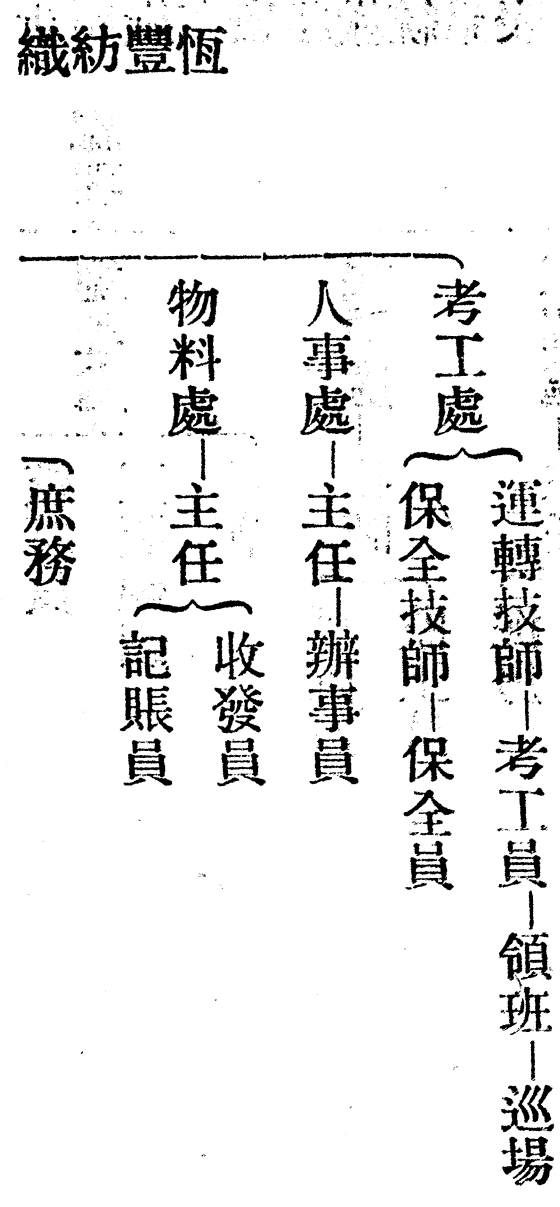 恆豐紡織
考工處
運轉技師—考工員—領班—巡場
保全技師—保全員
人事處—主任—辦事員
物料處—主任
收發員
記賬員
庶務